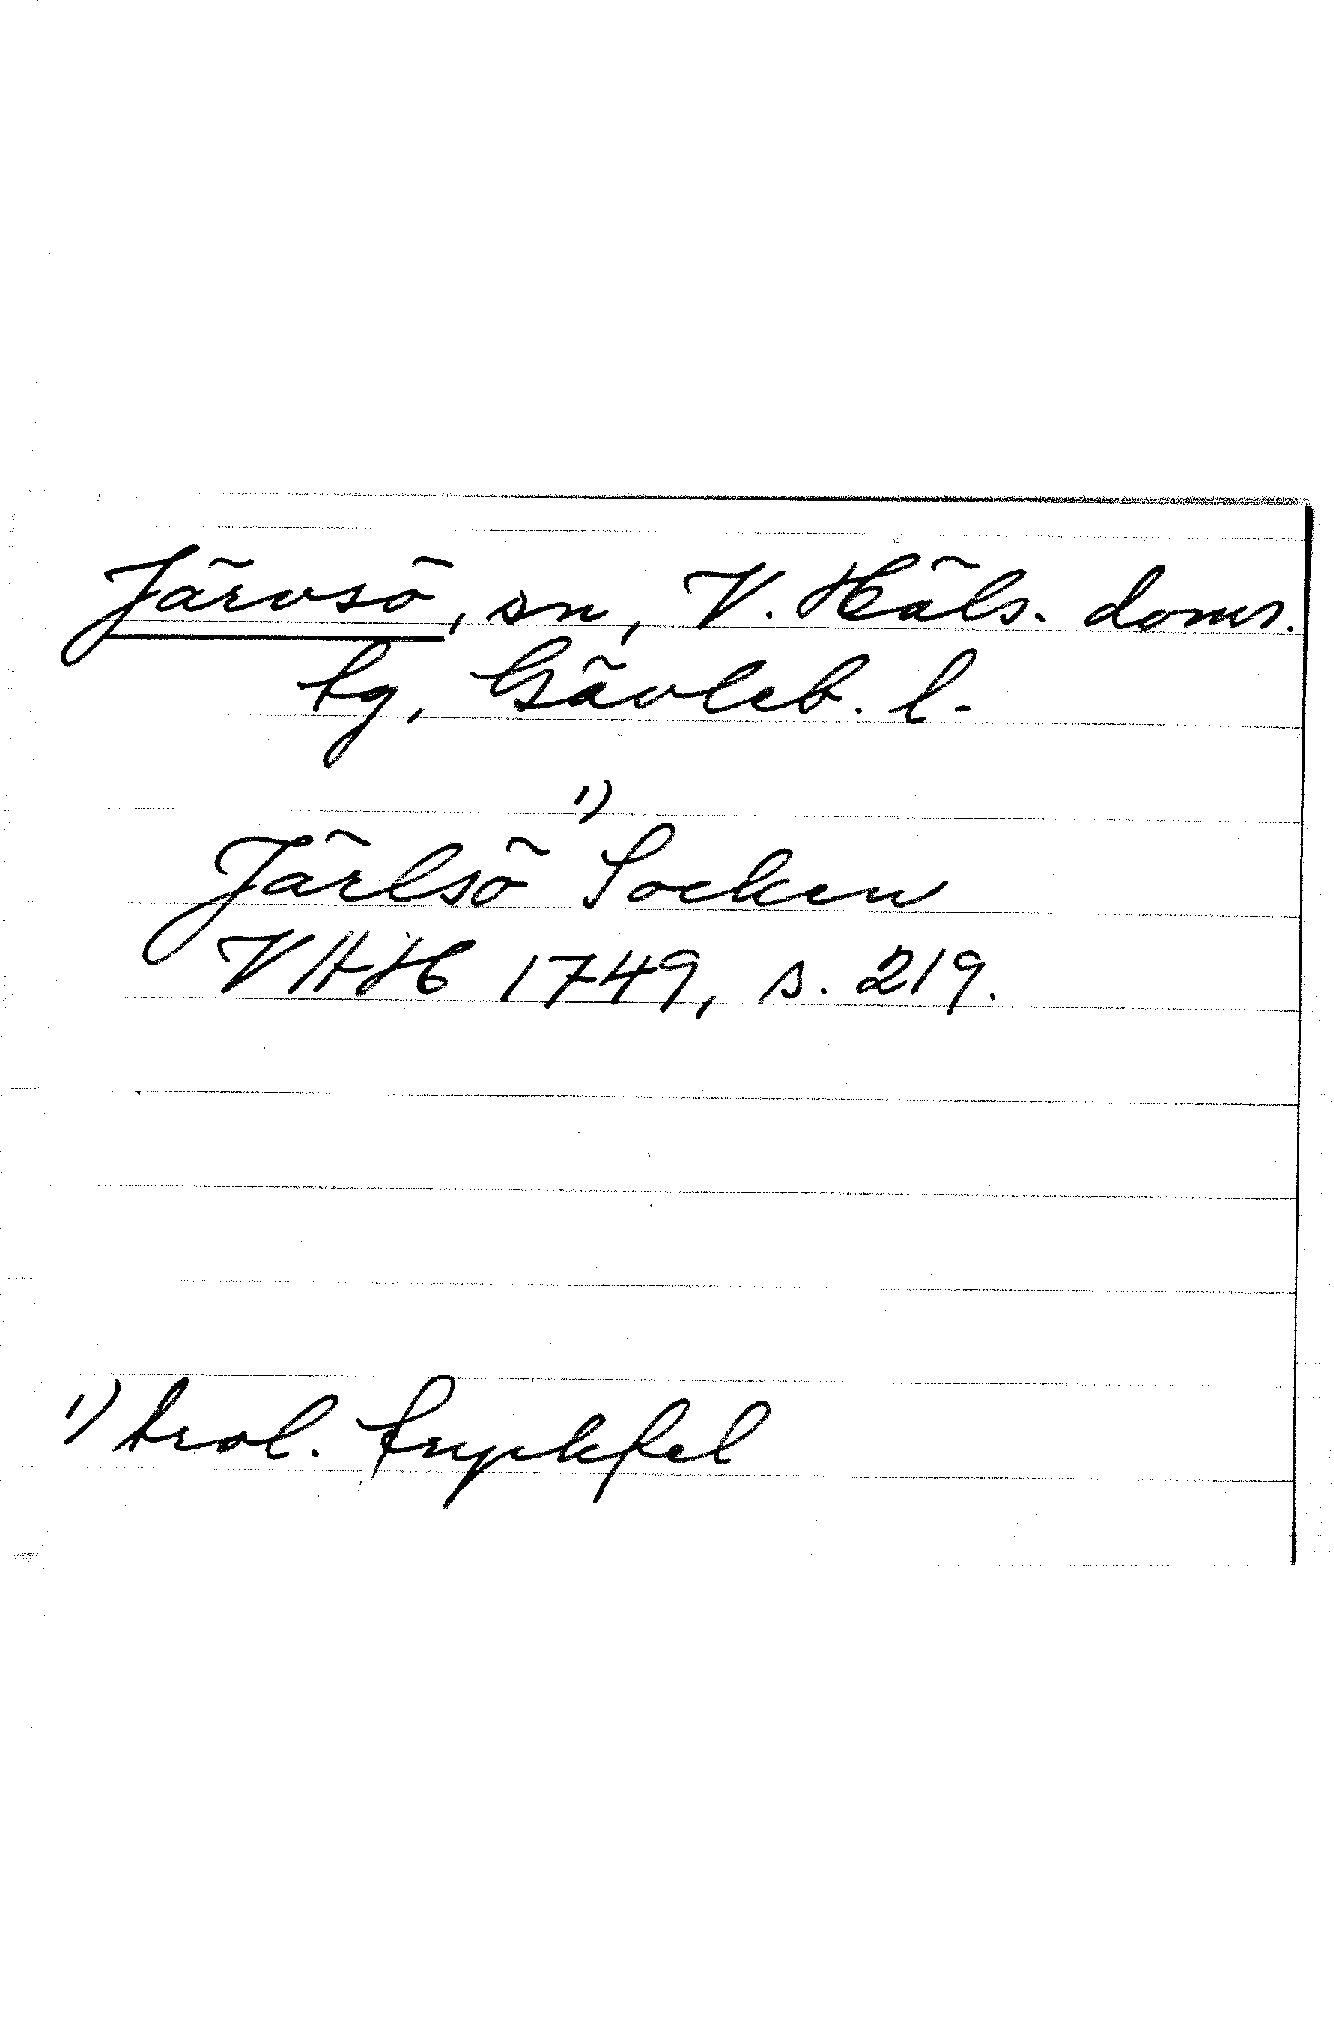 Järvsö, sn, V. Häls. doms.
tg, Gävleb. l.
Järlsö 1) Socken
VAH 1749, s. 219.
1) trol. tryckfel